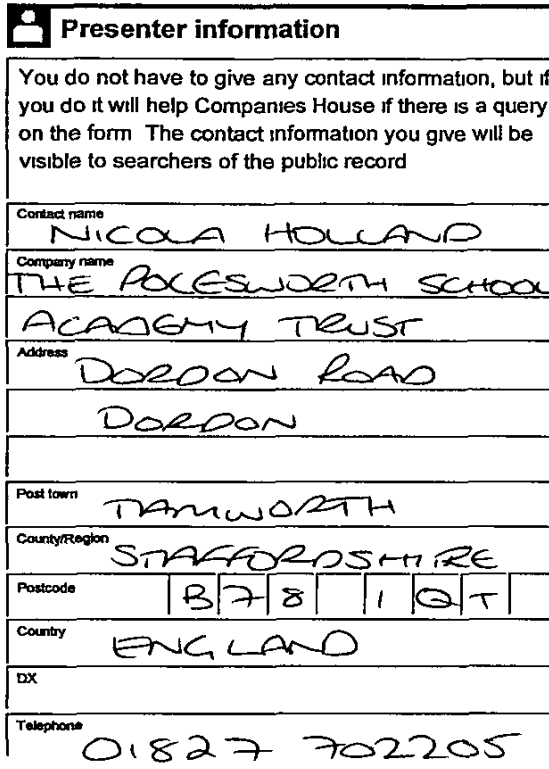 Presenter information
You do not have to give any contact information, but if
you do it will help Companies House if there is a query
on the form The contact information you give will be
visible to searchers of the public record
Contact name
NICOLA HOLLAND
Company name
THE POLESWORTH SCHOOL
ACADEMY TRUST
Address
DORDON ROAD
DORDON
Post town
TAMWORTH
County/Region
STAFFORDSHIRE
Postcode
B78 1QT
Country
ENGLAND
DX
Telephone
01827 702205